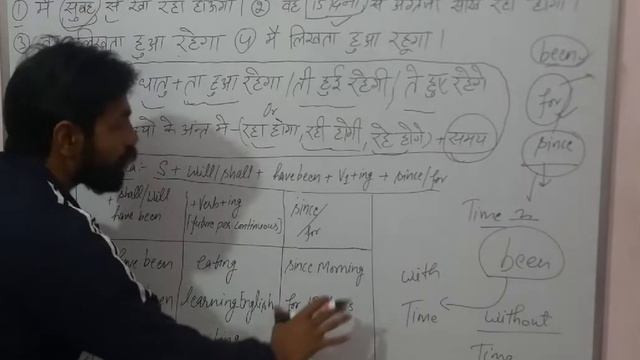 ① मैं सुबह से खा रहा होऊंगा। ② वह 15 दिनों से अंग्रेजी सीख रहा होगा।
③ लिखता हुआ रहेगा ④ मैं लिखता हुआ रहूगा।
धातु + ता हुआ रहेगा / ती हुई रहेगी / ते हुए रहेगे
Or
के अन्त मे - (रहा होगा, रही होगी, रहे होगे) + समय
S + will/shall + have been + V1+ing + since/for
+ shall/will have been
+ verb+ing [future per continuous]
since/for
have been eating since Morning
learning English for
been
for
since
Time
been
with Time
without Time